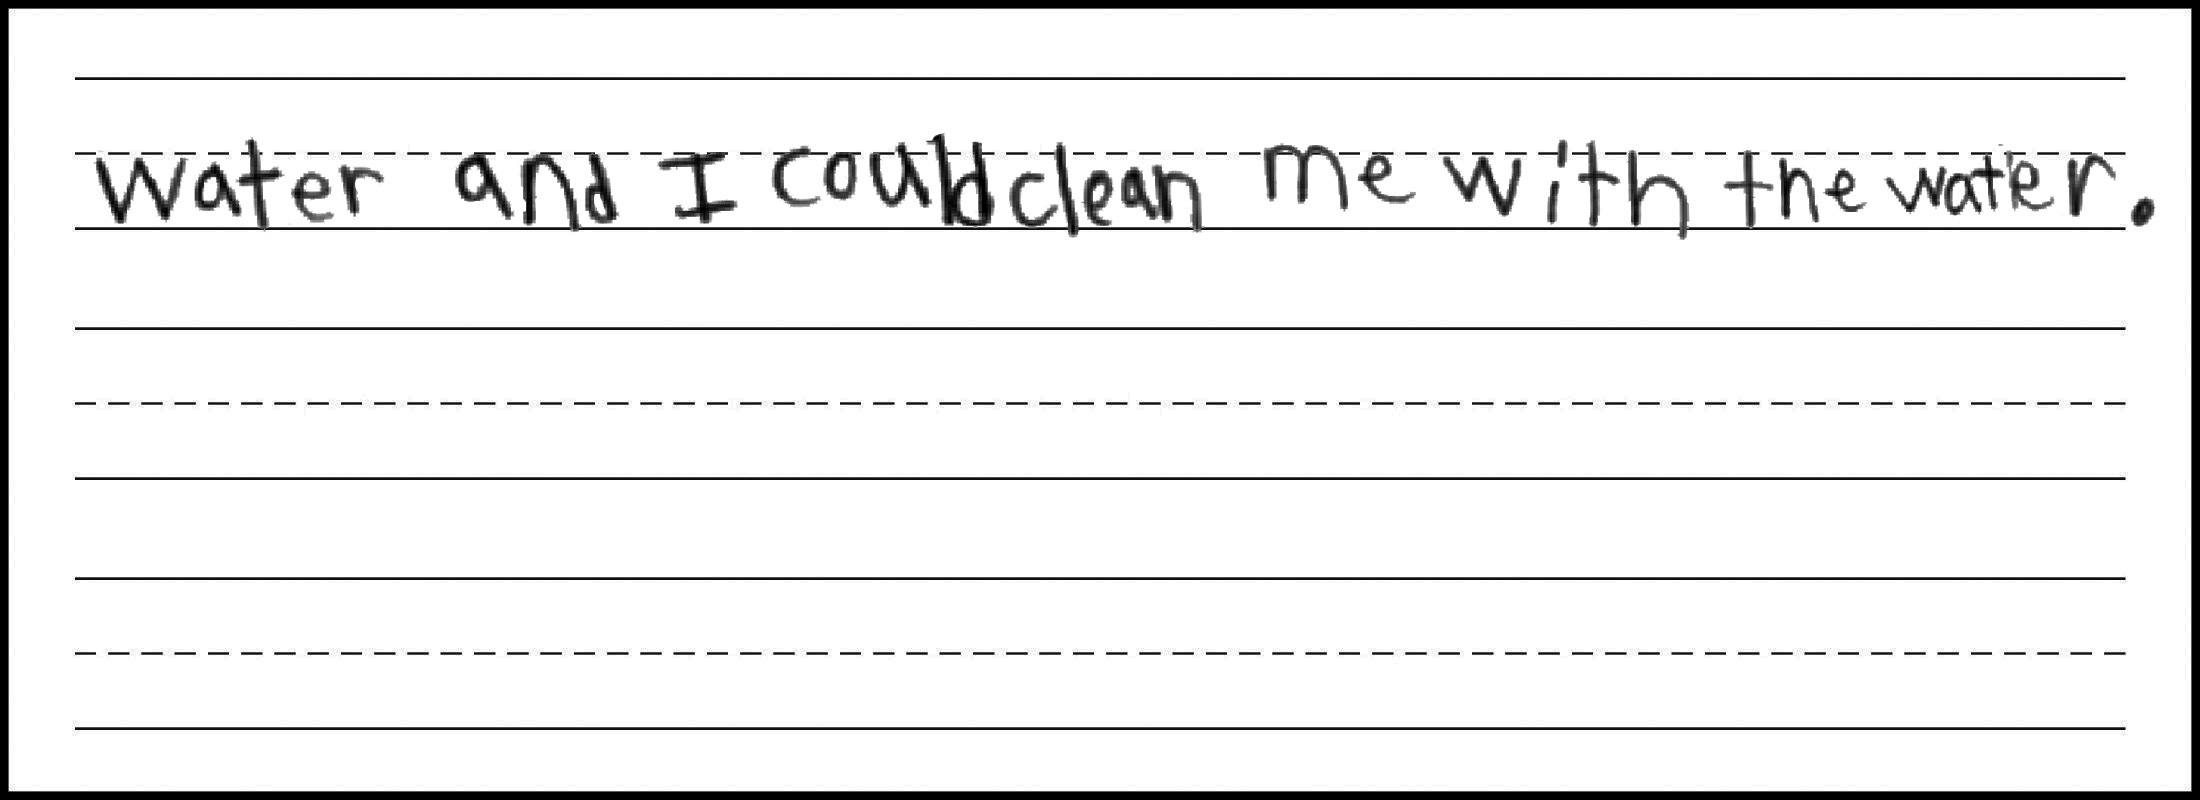 water and I could clean me with the water.